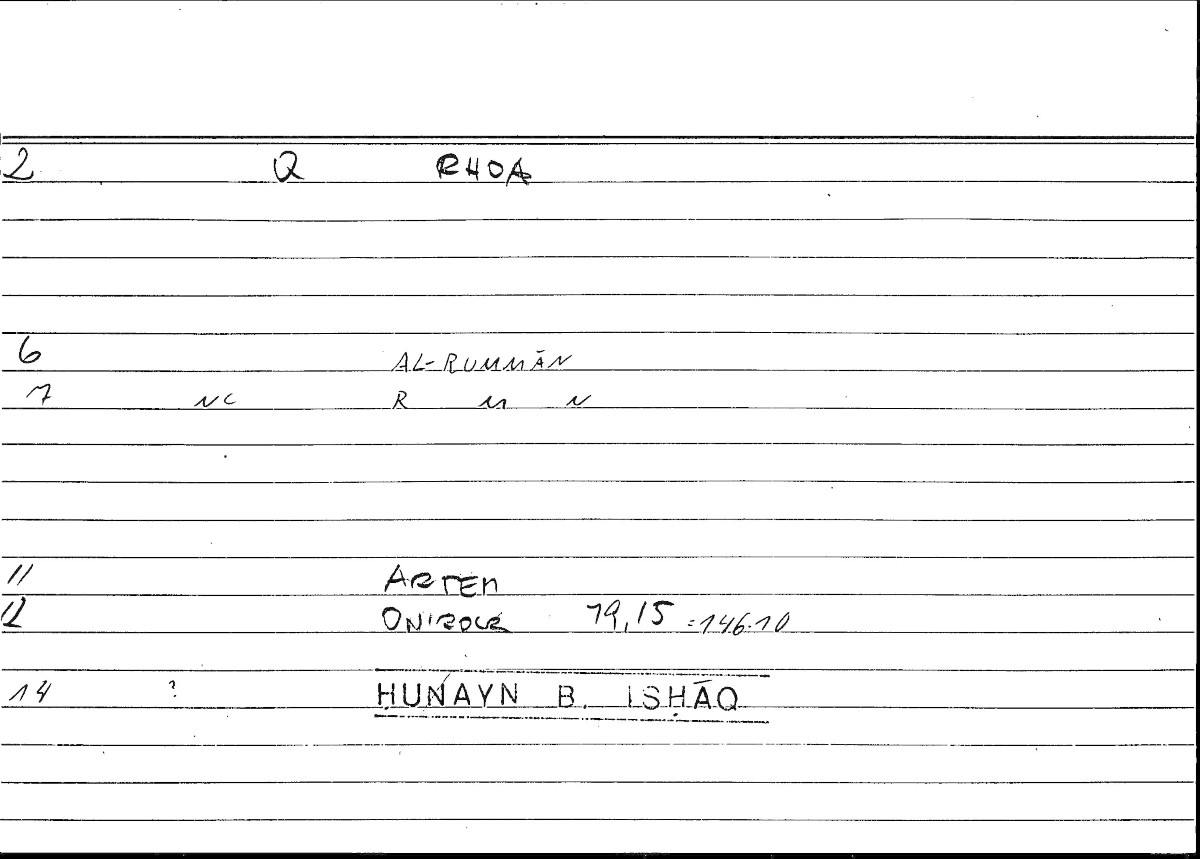 2 Q RHOA
6 AL-RUMMĀN
7 NC R M N
11 ARTEM
12 ONIROCR 79,15 =146.10
14 ? ḤUNAYN B. ISḤĀQ